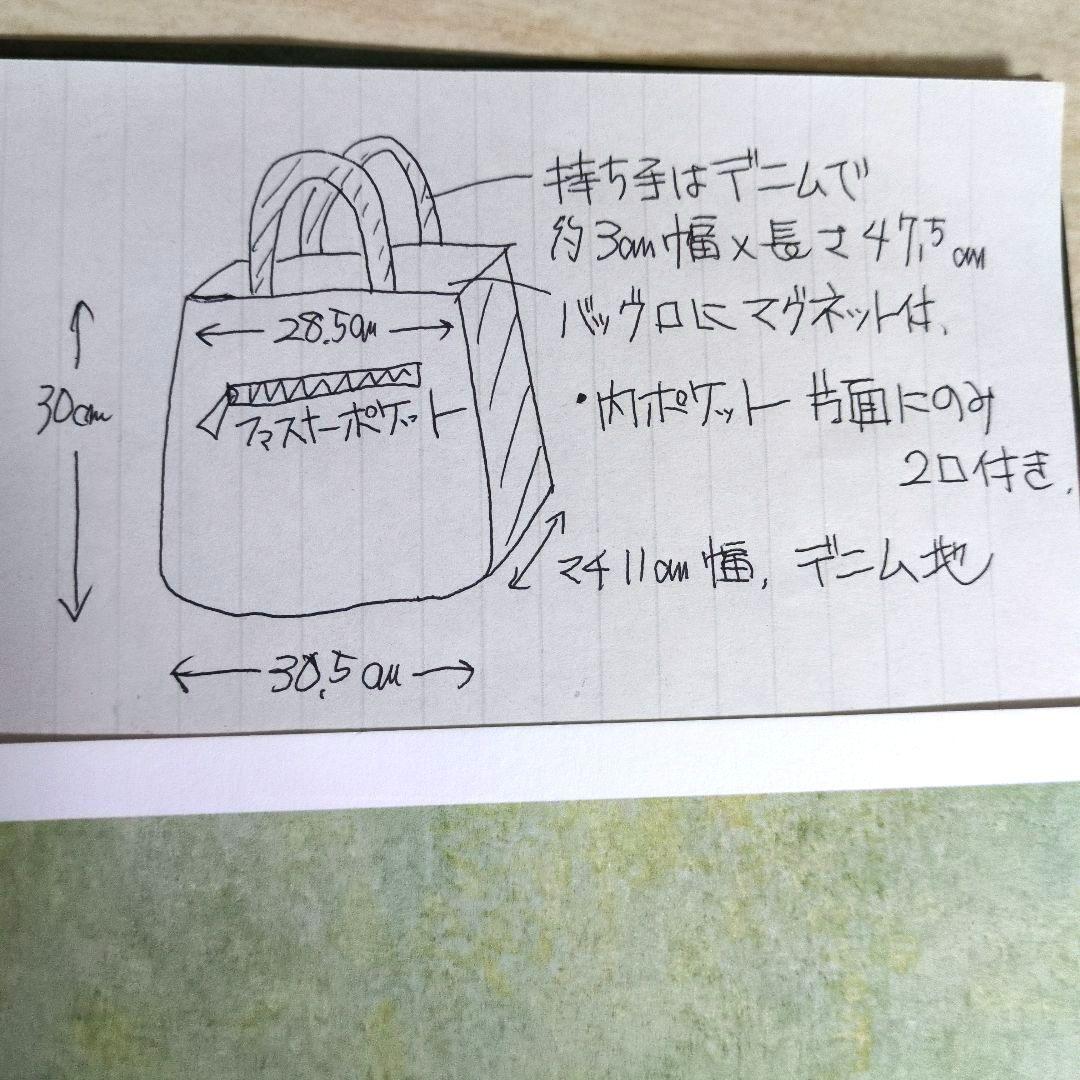 持ち手はデニムで
約3cm幅×長さ47.5cm
バッグ口にマグネット付.
28.5cm
30cm
ファスナーポケット
・内ポケット 片面にのみ
2口付き.
マチ11cm幅, デニム地
30.5cm